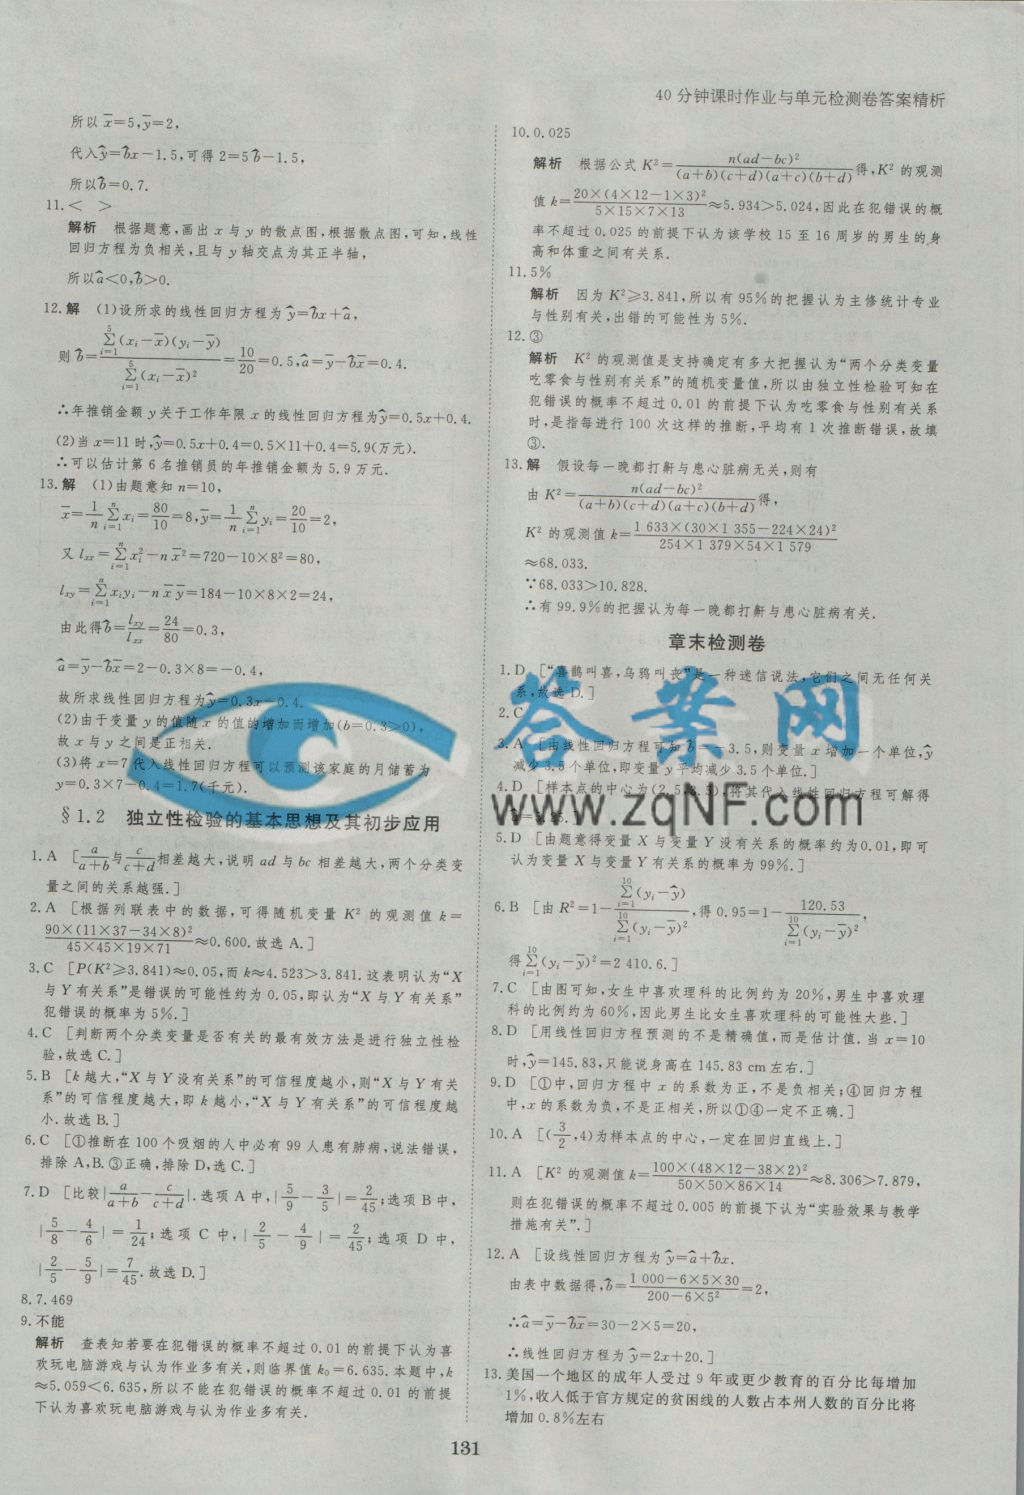 40分钟课时作业与单元检测卷答案精析
所以x̄=5,ȳ=2,
代入ŷ=b̂x-1.5,可得2=5b̂-1.5,
所以b̂=0.7.
11.< >
解析 根据题意,画出x与y的散点图,根据散点图,可知,线性
回归方程为负相关,且与y轴交点为其正半轴,
所以â<0,b̂>0.
12.解 (1)设所求的线性回归方程为ŷ=b̂x+â,
则b̂=∑(i=1→5)(xᵢ-x̄)(yᵢ-ȳ)/∑(i=1→5)(xᵢ-x̄)²=10/20=0.5,â=ȳ-b̂x̄=0.4.
∴年推销金额y关于工作年限x的线性回归方程为ŷ=0.5x+0.4.
(2)当x=11时,ŷ=0.5x+0.4=0.5×11+0.4=5.9(万元).
∴可以估计第6名推销员的年推销金额为5.9万元.
13.解 (1)由题意知n=10,
x̄=1/n ∑(i=1→n)xᵢ=80/10=8,ȳ=1/n ∑(i=1→n)yᵢ=20/10=2,
又lₓₓ=∑(i=1→n)xᵢ²-nx̄²=720-10×8²=80,
lxy=∑(i=1→n)xᵢyᵢ-nx̄ȳ=184-10×8×2=24,
由此得b̂=lxy/lxx=24/80=0.3,
â=ȳ-b̂x̄=2-0.3×8=-0.4,
故所求线性回归方程为ŷ=0.3x-0.4.
(2)由于变量y的值随x的值的增加而增加(b=0.3>0),
故x与y之间是正相关.
(3)将x=7代入线性回归方程可以预测该家庭的月储蓄为
y=0.3×7-0.4=1.7(千元).
§1.2 独立性检验的基本思想及其初步应用
1.A [a/(a+b)与c/(c+d)相差越大,说明ad与bc相差越大,两个分类变
量之间的关系越强.]
2.A [根据列联表中的数据,可得随机变量K²的观测值k=
90×(11×37-34×8)²/(45×45×19×71)≈0.600.故选A.]
3.C [P(K²≥3.841)≈0.05,而k≈4.523>3.841.这表明认为“X
与Y有关系”是错误的可能性约为0.05,即认为“X与Y有关系”
犯错误的概率为5%.]
4.C [判断两个分类变量是否有关的最有效方法是进行独立性检
验,故选C.]
5.B [k越大,“X与Y没有关系”的可信程度越小,则“X与Y有关
系”的可信程度越大,即k越小,“X与Y有关系”的可信程度越
小.故选B.]
6.C [①推断在100个吸烟的人中必有99人患有肺病,说法错误,
排除A,B.③正确,排除D,选C.]
7.D [比较|a/(a+b)-c/(c+d)|.选项A中,|5/9-3/5|=2/45;选项B中,
|5/8-4/6|=1/24;选项C中,|2/5-4/9|=2/45;选项D中,
|2/5-5/9|=7/45.故选D.]
8.7.469
9.不能
解析 查表知若要在犯错误的概率不超过0.01的前提下认为喜
欢玩电脑游戏与认为作业多有关,则临界值k₀=6.635.本题中,k
≈5.059<6.635,所以不能在犯错误的概率不超过0.01的前提
下认为喜欢玩电脑游戏与认为作业多有关.
10.0.025
解析 根据公式K²=n(ad-bc)²/((a+b)(c+d)(a+c)(b+d))得,K²的观测
值k=20×(4×12-1×3)²/(5×15×7×13)≈5.934>5.024,因此在犯错误的概
率不超过0.025的前提下认为该学校15至16周岁的男生的身
高和体重之间有关系.
11.5%
解析 因为K²≥3.841,所以有95%的把握认为主修统计专业
与性别有关,出错的可能性为5%.
12.③
解析 K²的观测值是支持确定有多大把握认为“两个分类变量
吃零食与性别有关系”的随机变量值,所以由独立性检验可知在
犯错误的概率不超过0.01的前提下认为吃零食与性别有关系
时,是指每进行100次这样的推断,平均有1次推断错误,故填
③.
13.解 假设每一晚都打鼾与患心脏病无关,则有
由K²=n(ad-bc)²/((a+b)(c+d)(a+c)(b+d))得,
K²的观测值k=1 633×(30×1 355-224×24)²/(254×1 379×54×1 579)
≈68.033.
∵68.033>10.828.
∴有99.9%的把握认为每一晚都打鼾与患心脏病有关.
章末检测卷
1.D [“喜鹊叫喜,乌鸦叫丧”是一种迷信说法,它们之间无任何关
系,故选D.]
2.C
3.A [由线性回归方程可知b̂=-3.5,则变量x增加一个单位,ŷ
减少3.5个单位,即变量y平均减少3.5个单位.]
4.D [样本点的中心为(2.5,3.5),将其代入线性回归方程可解得
5.D [由题意得变量X与变量Y没有关系的概率约为0.01,即可
认为变量X与变量Y有关系的概率为99%.]
6.B [由R²=1-∑(i=1→10)(yᵢ-ŷ)/∑(i=1→10)(yᵢ-ȳ)²,得0.95=1-120.53/∑(i=1→10)(yᵢ-ȳ)²,
得∑(i=1→10)(yᵢ-ȳ)²=2 410.6.]
7.C [由图可知,女生中喜欢理科的比例约为20%,男生中喜欢理
科的比例约为60%,因此男生比女生喜欢理科的可能性大些.]
8.D [用线性回归方程预测的不是精确值,而是估计值.当x=10
时,ŷ=145.83,只能说身高在145.83 cm左右.]
9.D [①中,回归方程中x的系数为正,不是负相关;④回归方程
中,x的系数为负,不是正相关,所以①④一定不正确.]
10.A [(3/2,4)为样本点的中心,一定在回归直线上.]
11.A [K²的观测值k=100×(48×12-38×2)²/(50×50×86×14)≈8.306>7.879,
则在犯错误的概率不超过0.005的前提下认为“实验效果与教学
措施有关”.]
12.A [设线性回归方程为ŷ=â+b̂x.
由表中数据得,b̂=(1 000-6×5×30)/(200-6×5²)=2,
∴â=ȳ-b̂x̄=30-2×5=20,
∴线性回归方程为ŷ=2x+20.]
13.美国一个地区的成年人受过9年或更少教育的百分比每增加
1%,收入低于官方规定的贫困线的人数占本州人数的百分比将
增加0.8%左右
131
答案网
www.zqNF.com